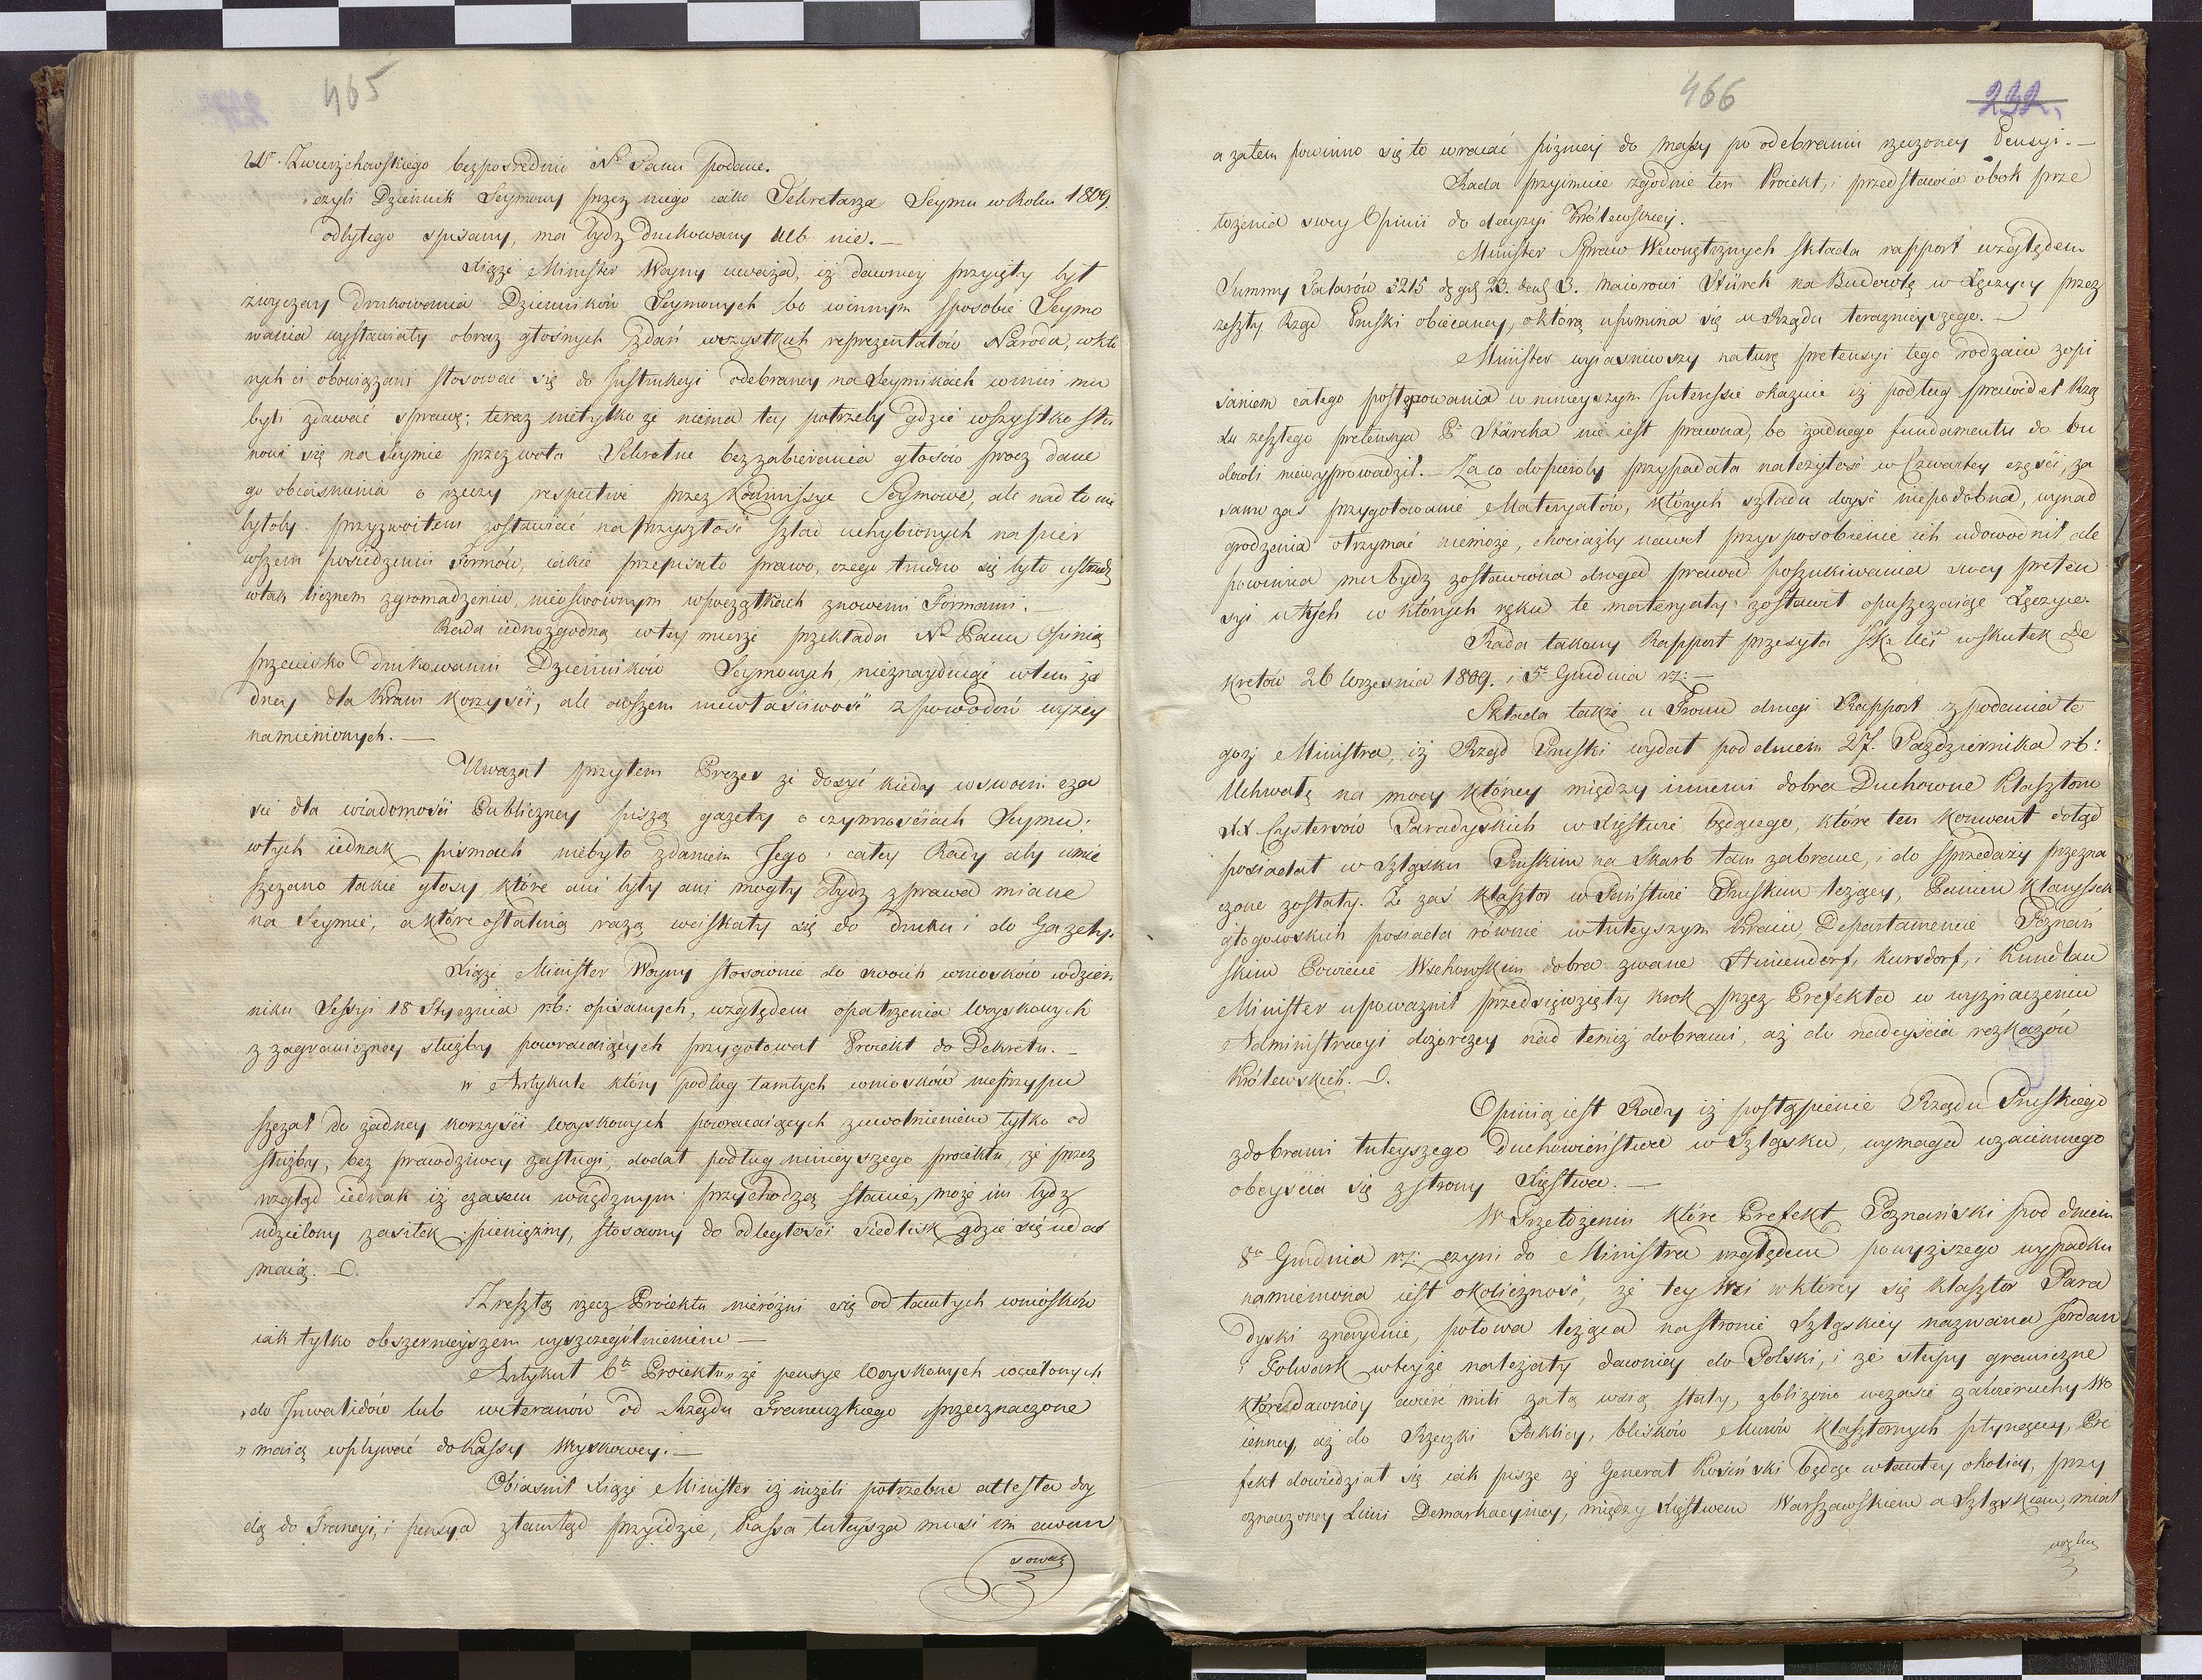 465
Wo Zwierzchowskiego bezpośrednio No Panu podane.
czyli Dziennik Seymowy przez niego iako Sekretarza Seymu w Roku 1809.
odbytego spisany, ma bydź drukowany alb nie. —
Xiąże Minister Woyny uważa, iż dawniey przyięty był
zwyczay drukowania Dzienników Seymowych bo w innym sposobie Seymo
wania wystawiały obraz głośnych zdań wszystkich reprezentatów Narodu, w któ
rych ci obowiązani stosować się do Instrukcyi odebraney na Seymikach winni mu
byli zdawać sprawę; teraz nietylko że niema tey potrzeby gdzie wszystko sta
nowi się na Seymie przez wota Sekretne bez zabierania głosów prócz dane
go obiaśnienia o rzeczy respective przez Kommissye Seymowe, ale nad to nie
byłoby przyzwoitem zostawiać na przyszłość szlad uchybionych na pier
wszem posiedzeniu Formów, iakie przepisało prawo, czego trudno się było ustrzedz
w tak licznem zgromadzeniu, nieoswoionym w początkach z nowemi Formami. —
Rada iednozgodną w tey mierze przekłada No Panu Opinią
przeciwko drukowaniu Dzienników Seymowych, nieznayduiąc w tem ża
dney dla kraiu korzyści, ale owszem niewłaściwość z powodów wyżey
namienionych. —
Uważał przytem Prezes że dosyć kiedy w swoim cza
sie dla wiadomości Publiczney piszą gazety o czynnościach Seymu;
w tych iednak pismach niebyło zdaniem Jego i całey Rady aby umie
szczano takie głosy, które ani były ani mogły bydź z prawa miane
na Seymie, a które ostatnią razą wciskały się do druku i do Gazety.
Xiąże Minister Woyny stosownie do swoich wniosków w dzien
niku Sessyi 18 Stycznia rb: opisanych, względem opatrzenia Woyskowych
z zagraniczney służby powracaiących przygotował Proiekt do Dekretu. —
w Artykule który podług tamtych wniosków nieprzypu
szczał do żadney korzyści Woyskowych powracaiących z uwolnieniem tylko od
służby, bez prawdziwey zasługi, dodał podług ninieyszego proiektu, że przez
wzgląd iednak iż czasem w nędznym przychodzą stanie, może im bydź
udzielony zasiłek pieniężny, stosowny do odległości siedlisk gdzie się udać
maią. —
Zresztą rzecz Proiektu nieróżni się od tamtych wniosków
iak tylko obszernieyszem wyszczególnieniem —
Artykuł 6ty Proiektu „że pensye Woyskowych wcielonych
„do Inwalidów lub weteranów od Rządu Francuzkiego przeznaczone
„maią wpływać do Kassy Woyskowey. —
Obiaśnił Xiąże Minister iż nizeli potrzebne attesta doy
dą do Francyi, i pensya ztamtąd przyidzie, Kassa tuteysza musi im awan
sować
466
232.
a zatem powinno się to wracać pózniey do massy po odebraniu rzeczoney Pensyi. —
Rada przyimuie zgodnie ten Proiekt, i przedstawia obok prze
łożenia swey Opinii do decyzyi Królewskiey. —
Minister Spraw Wewnętrznych składa rapport względem
Summy Talarów 3215 dg grs 23. den 3. Maiorowi Stürck na Budowlę w Łęczycy przez
zeszły Rząd Pruski obiecaney, o którą upomina się u Rządu teraznieyszego. —
Minister wyiasniwszy naturę pretensyi tego rodzaiu z opi
saniem całego postępowania w ninieyszym Interessie okazuie iż podług prawideł Rzą
du zeszłego pretensya Po Stürcka nie iest prawna, bo żadnego fundamentu do bu
dowli niewyprowadził. — Za co dopieroby przypadała należytość w Czwartey części, za
samo zaś przygotowanie Materyałów, których szladu dosyć niepodobna, wynad
grodzenia otrzymać niemoże, chociażby nawet przysposobienie ich udowodnił ale
powinna mu bydź zostawiona droga prawa poszukiwania swey preten
syi u tych w których ręku te materyały zostawił opuszczaiąc Łęczycę.
Rada takowy Rapport przesyła JKr Mci w skutek De
kretów 26 Września 1809. i 5o Grudnia rz: —
Składa także u Tronu drugi Rapport z podania te
goż Ministra, iż Rząd Pruski wydał pod dniem 27. Października rb:
Uchwałę na mocy którey między innemi dobra Duchowne Klasztoru
XX Cystersów Paradyskich w Xięstwie będącego, które ten konwent dotąd
posiadał w Szląsku Pruskim na Skarb tam zabrane, i do sprzedaży przezna
czone zostały. Że zaś klasztor w Państwie Pruskim leżący, Panien Klarysek
głogowskich posiada równie w tuteyszym kraiu, Departamencie Poznań
skim Powiecie Wschowskim dobra zwane Hiniendorf, Kursdorf, i Kundlau
Minister upoważnił przedsięwzięty krok przez Prefekta w wyznaczeniu
Administracyi dozorczey nad temiż dobrami, aż do nadeyścia rozkazów
Królewskich. —
Opinią iest Rady iż postąpienie Rządu Pruskiego
z dobrami tuteyszego Duchowieństwa w Szląsku, wymaga wzaiemnego
obeyścia się z strony Xięstwa. —
W Przełożeniu które Prefekt Poznański pod dniem
8o Grudnia rz: czyni do Ministra względem powyższego wypadku
namieniona iest okoliczność, że tey Wsi w którey się klasztor Para
dyski znayduie, połowa leżąca na stronie Szląskiey nazwana Jordan
i Folwark w teyże należały dawniey do Polski, i że słupy graniczne
które dawniey ćwierć mili za tą wsią stały, zbliżono w czasie zawieruchy Wo
ienney, aż do Rzeczki Paklicy, blisków Murów klasztornych płynącey, Pre
fekt dowiedział się iak pisze że Generał Kosiński będąc w tamtey okolicy, przy
oznaczoney Linii Demarkacyiney, między Xięstwem Warszawskiem a Szląskiem, miał
wzglę